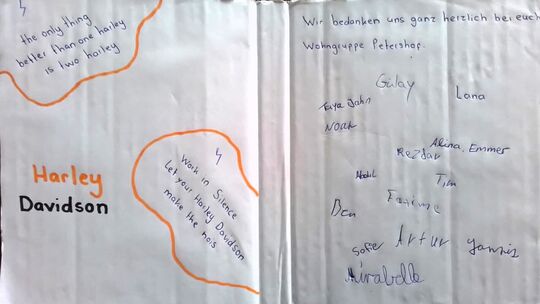 the only thing
better than one harley
is two harley
Harley
Davidson
Work in Silence
Let your Harley Davidson
make the nois
Wir bedanken uns ganz herzlich bei euch
Wohngruppe Petershop.
Gülay
Lana
Jahn
Noah
Alina, Emmer
Rezdar
Abdul
Tim
Fatime
Ben
Sofie Artur Yannis
Mirabelle